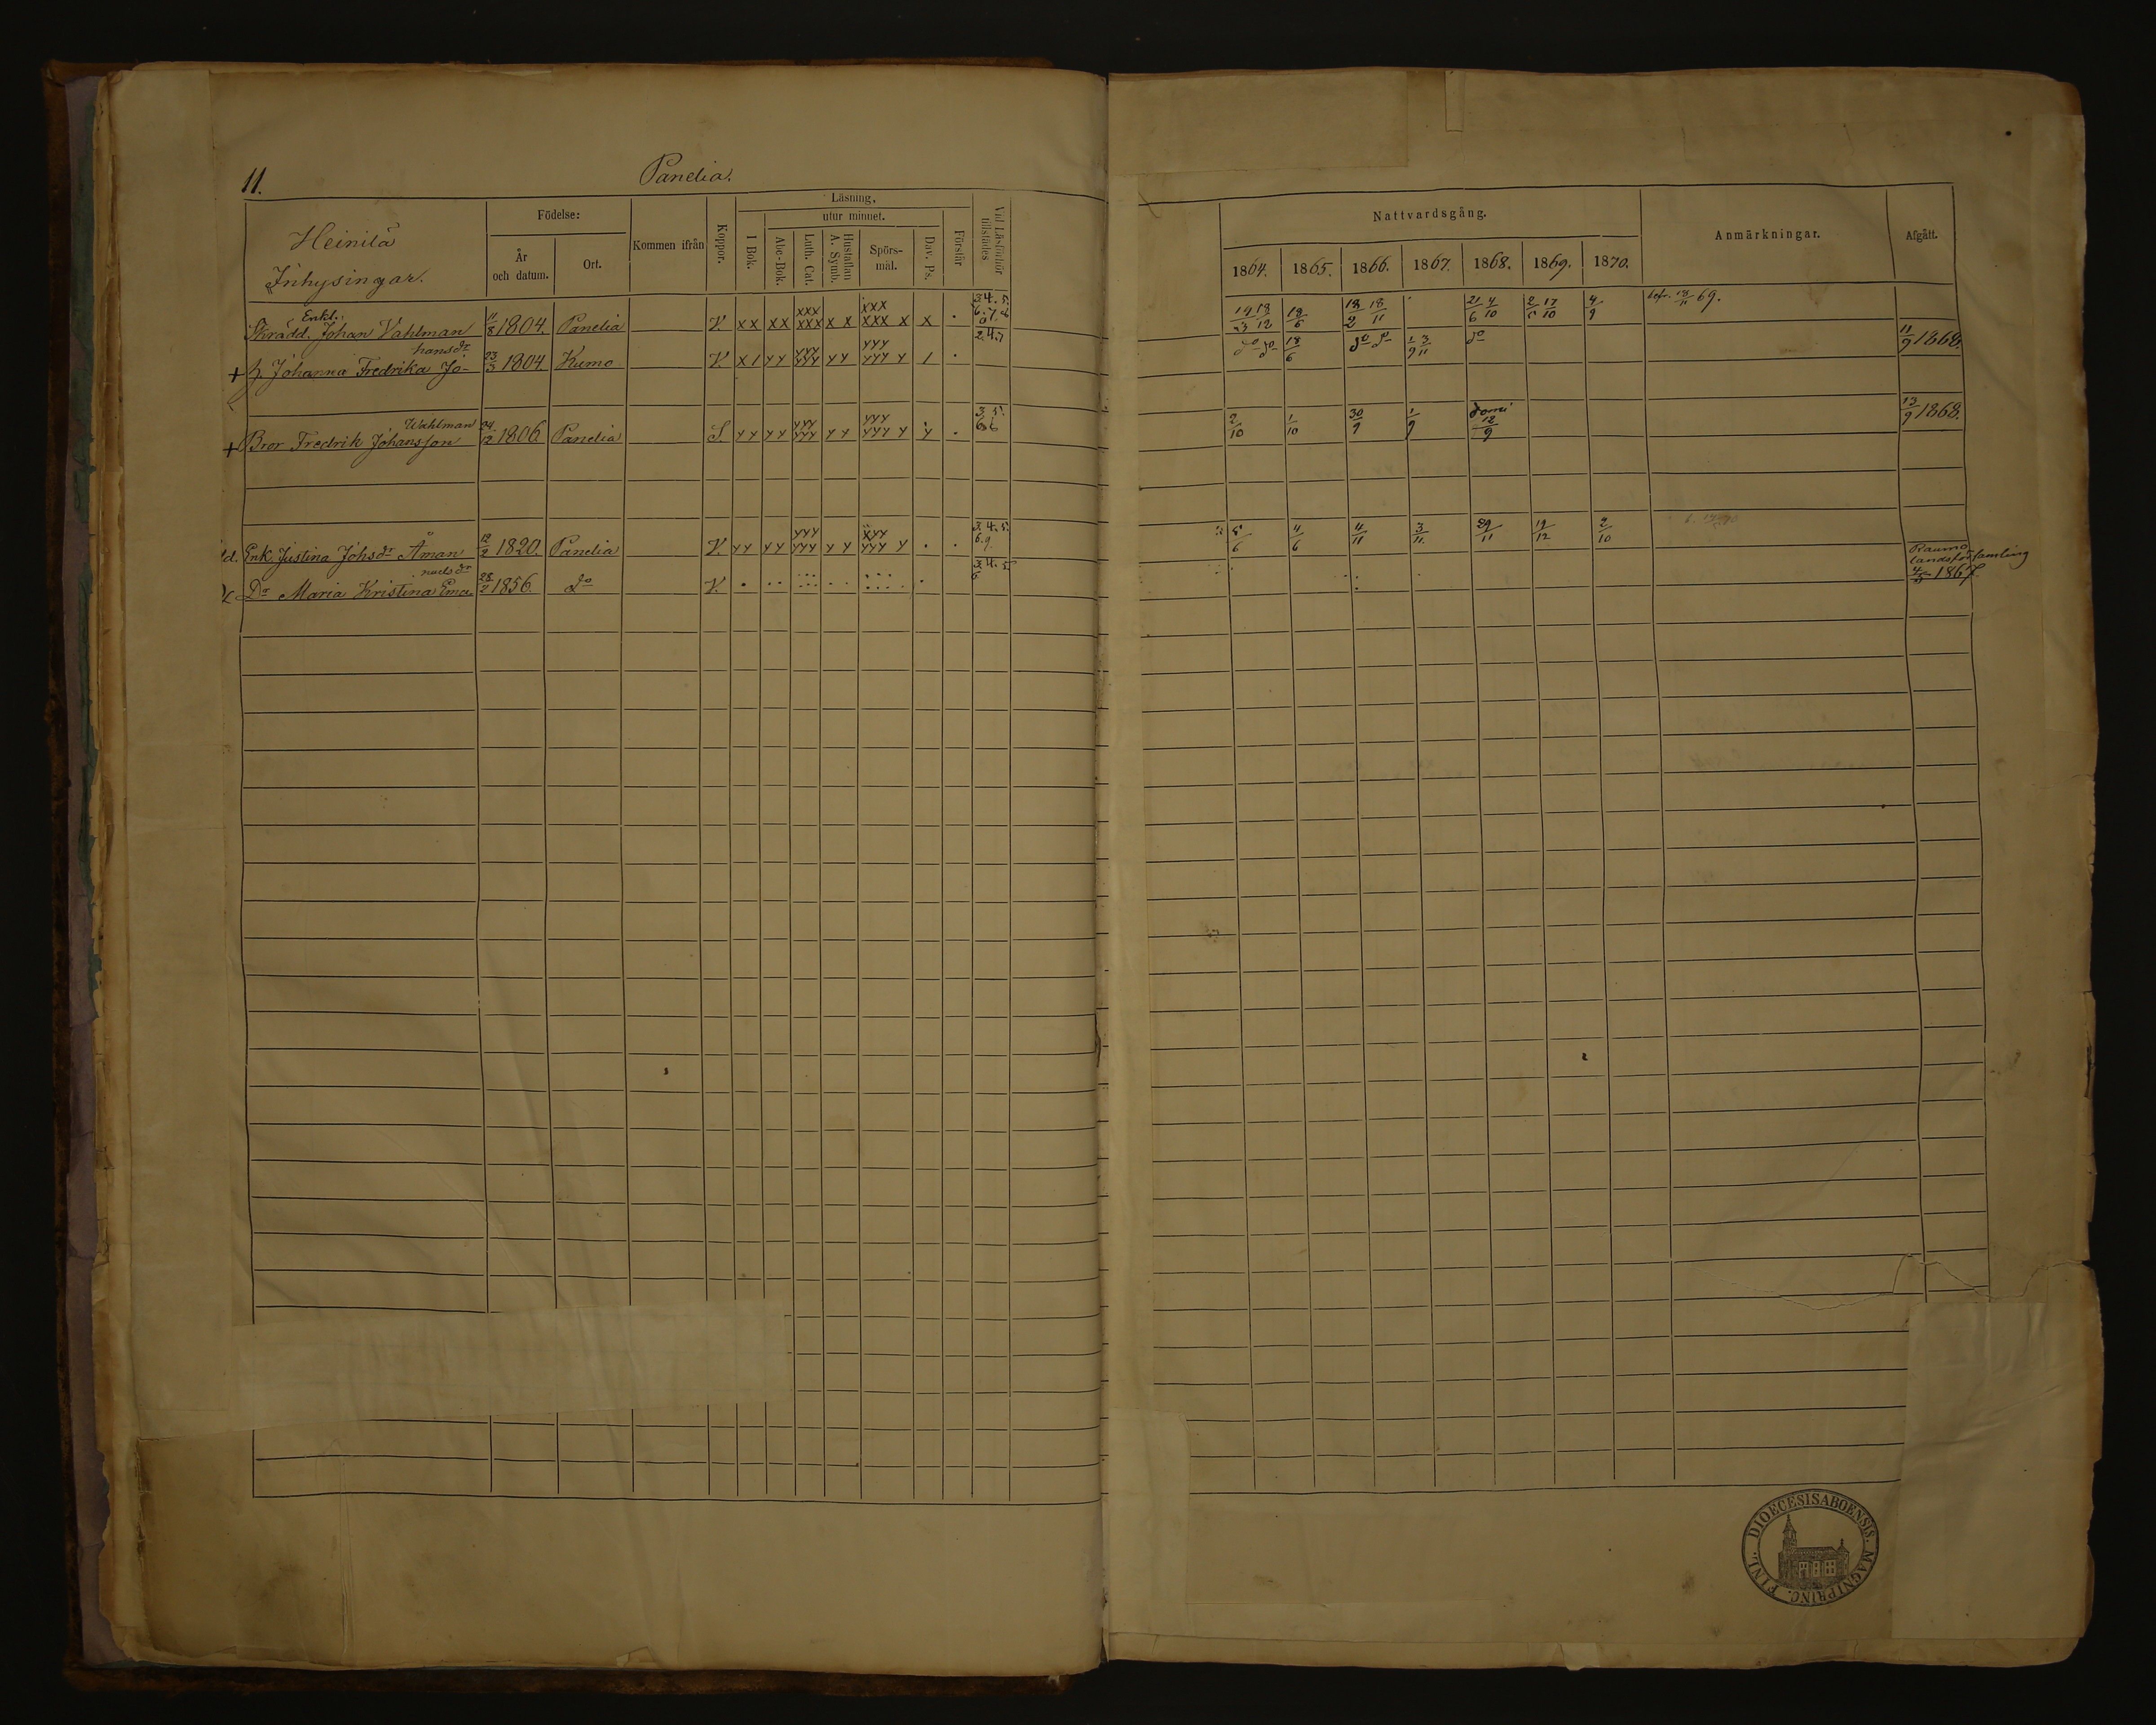 11.
Panelia.
Heinilä
Inhysingar.
Födelse:
År och datum.
Ort.
Kommen ifrån
Koppor.
Läsning,
I Bok.
utur minnet.
Abc-Bok.
Luth. Cat.
Hustaflan A. Symb.
Spörs-mål.
Dav. Ps.
Förstår
Vid Läsförhör tillstädes
Nattvardsgång.
1864. 1865. 1866. 1867. 1868. 1869. 1870.
Anmärkningar.
Afgått.
Enkl.
Skrädd. Johan Vahlman 11/8 1804. Panelia V. xx xx xxx xxx xx xxx xxx x x . 18/6 18/2 18/11 21/6 4/10 17/10 4/9 69.
hansdr
+ H. Johanna Fredrika Jo- 23/3 1804 Kumo V. x/ yy yyy yyy yy yyy yyy y / . do do 18/6 do do 1/9 3/11 do 11/9 1868.
Wahlman
+ Bror Fredrik Johansson 24/12 1806. Panelia S. yy yy yyy yyy yy yyy yyy y y . 2/10 1/10 30/9 1/9 domi 12/9 13/9 1868.
Enk. Justina Johsdr Åman 12/2 1820. Panelia V. yy yy yyy yyy yy yyy yyy y . . 3. 4. 5. 6. 9. 5/6 4/6 4/11 3/11 29/11 19/12 2/10
naelsdr
Dr Maria Kristina Ema- 28/2 1856. do V. 3. 4. 5. 6. Raumo landsförsamling 1867.
DIOECESIS ABOENSIS. MAGNI PRINC. FINL.